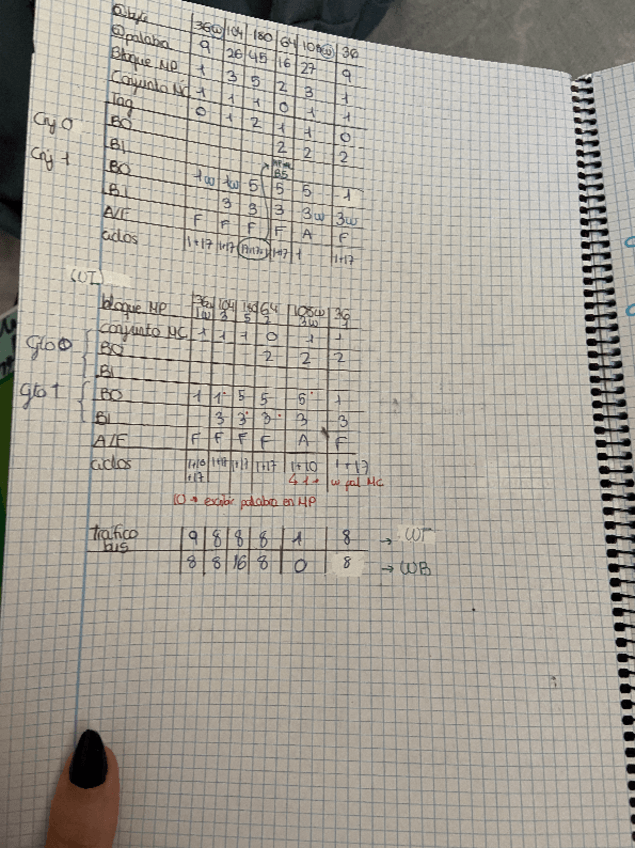 @byte 36w 104 180 64 108w 36
@palabra 9 26 45 16 27 9
Bloque MP 1 3 5 2 3 1
Conjunto MC 1 1 1 0 1 1
Tag 0 1 2 1 1 0
Cnj 0 B0 2 2 2
B1
Cnj 1 B0 1w 1w 5 5 5 1
B1 3 3 3 3w 3w
A/F F F F F A F
ciclos 1+17 1+17 1+17 1 1+17
bloque MP 36w 104 180 64 108w 36
1w 3 5 2 3w 1
conjunto MC 1 1 1 0 1 1
Cjto 0 B0 2 2 2
B1
Cjto 1 B0 1 1 5 5 5 1
B1 3 3 3 3 3
A/F F F F F A F
ciclos 1+10 1+17 1+17 1+17 1+10 1+17
+17 pal MC
escribir palabra en MP
trafico bus 9 8 8 8 1 8 → WT
8 8 16 8 0 8 → WB